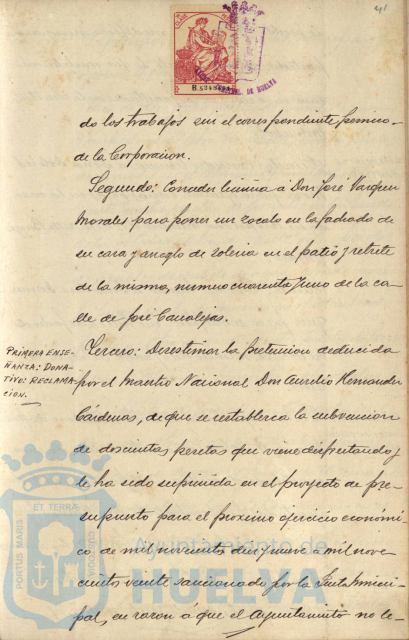 41
do los trabajos sin el correspondiente permiso
de la Corporacion.
Segundo: Conceder licencia á Don José Vazquez
Morales para poner un zocalo en la fachada de
su casa y arreglo de soleria en el patio y retrete
de la misma, numero cuarenta y uno de la ca-
lle de José Canalejas.
PRIMERA ENSE-
ÑANZA: DONA-
TIVO: RECLAMA-
CION.
Tercero: Desestimar la pretension deducida
por el Maestro Nacional Don Aurelio Hernandez
Cárdenas, de que se restablezca la subvencion
de doscientas pesetas que viene disfrutando y
le ha sido suprimida en el proyecto de pre-
supuesto para el proximo ejercicio económi-
co de mil novecientos diez y nueve a mil nove-
cientos veinte sancionado por la Junta Munici-
pal, en razon á que el Ayuntamiento no le-
Ayuntamiento de
HUELVA
PORTUS MARIS ET TERRAE CUSTODIA